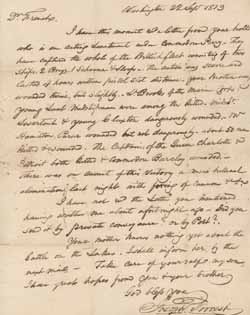 Washington 22 Sept 1813
Dr French
I have this moment a letter from your brother
who is an acting Lieutenant under Commodore Perry. They
have captured the whole of the British fleet consisting of two
Ships 2 Brigs 1 Schooner & Sloop. the action was severe and
lasted 3 hours within pistol shot distance. your Brother was
wounded thrice, but slightly. Lt Brooks of the Marine Corps &
young Laub Midshipman were among the killed. Mids.
Swartwout & young Claxton dangerously wounded. Mr
Hamilton Purser wounded but not dangerously. about 50 were
killed & wounded. The Captains of the Queen Charlotte &
Detroit both killed & Commodore Barclay wounded —
there was on account of this Victory a more General
illumination last night with firing of cannon &c &c
I have not recd the Letter you mentioned
having written me about a fortnight ago. Did you
send it by private conveyance? or by Post?.
Your mother knows nothing yet about the
battle on the Lakes. I shall inform her by the
next mail — Take care of yourself my son
I have great hopes from you & your brother
God bless you
Joseph Forrest